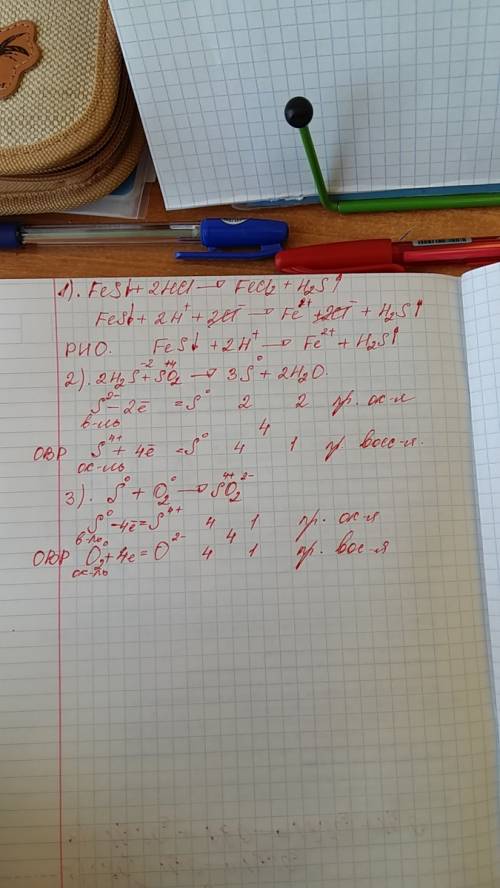 1). FeS↓ + 2HCl → FeCl2 + H2S↑
FeS↓ + 2H⁺ + 2Cl⁻ → Fe²⁺ + 2Cl⁻ + H2S↑
РИО. FeS↓ + 2H⁺ → Fe²⁺ + H2S↑
2). 2H2S⁻² + S⁺⁴O2 → 3S⁰ + 2H2O.
S²⁻ − 2ē = S⁰ 2 2 пр. ок-я
в-ль 4
ОВР S⁴⁺ + 4ē = S⁰ 4 1 пр. восс-я.
ок-ль
3). S⁰ + O2⁰ → S⁴⁺O2²⁻
S⁰ − 4ē = S⁴⁺ 4 1 пр. ок-я
в-ль 4
ОВР O2⁰ + 4е = O²⁻ 4 1 пр. вос-я
ок-ль